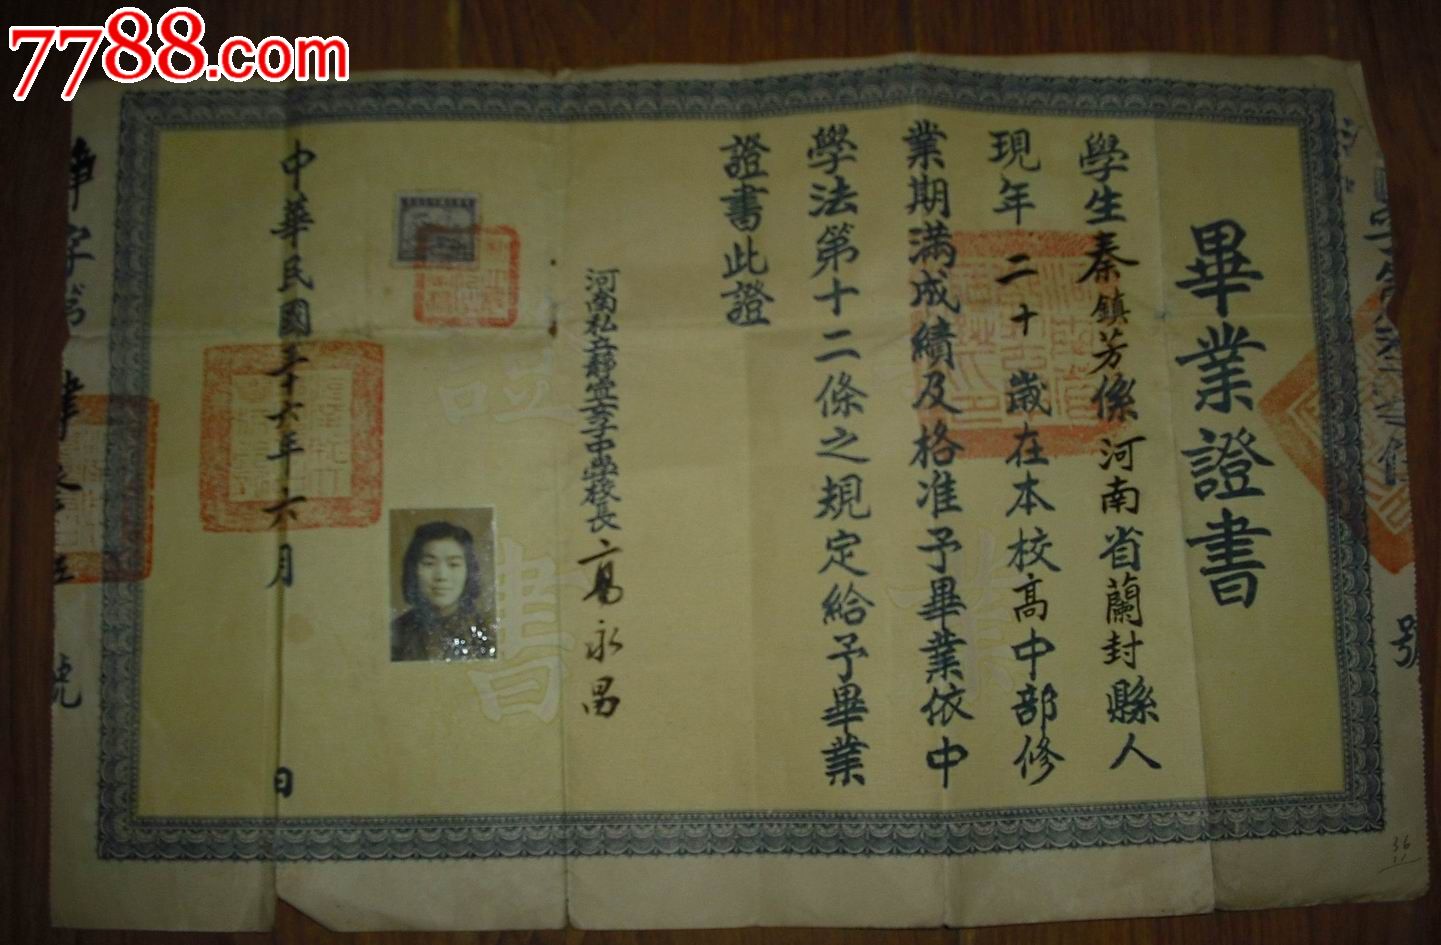 7788.com
畢業證書
學生秦鎮芳係河南省蘭封縣人
現年二十歲在本校高中部修
業期滿成績及格准予畢業依中
學法第十二條之規定給予畢業
證書此證
河南私立靜宜女子中學校長高永昌
中華民國三十六年六月 日
號
號